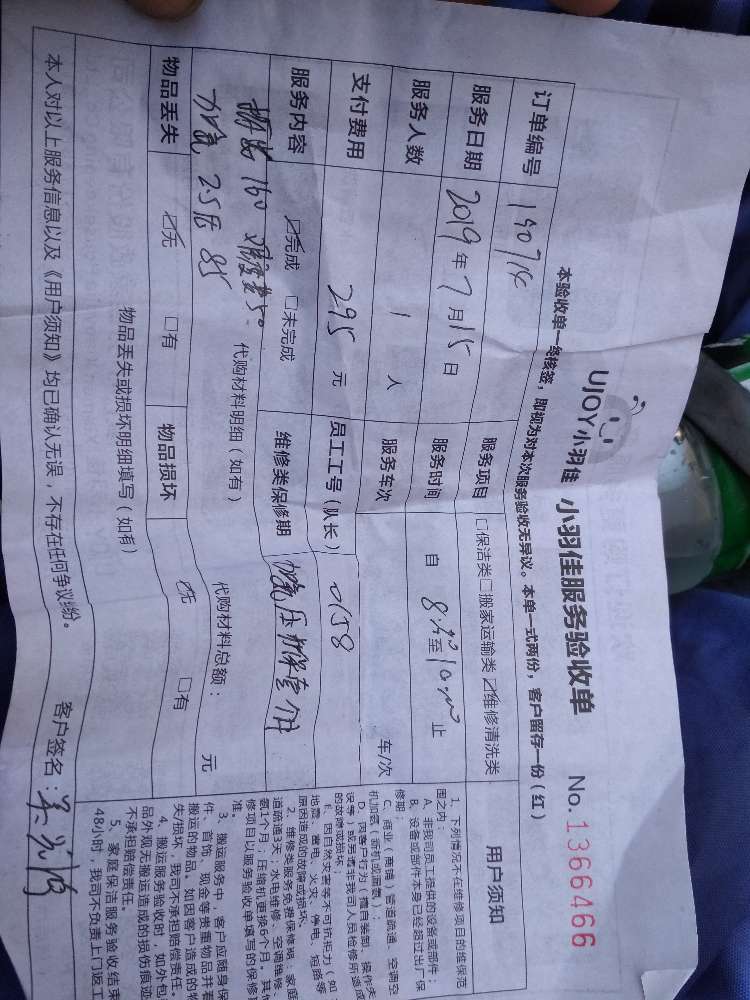 UJOY小羽佳 小羽佳服务验收单 No.1366466
本验收单一经核签，即视为对本次服务验收无异议。本单一式两份，客户留存一份（红）
订单编号 服务项目 □保洁类□搬家运输类☑维修清洗类
服务日期 2019年7月15日 服务时间 自 至 止
服务人数 1 人 服务车次 车/次
支付费用 295 元 员工工号（队长） 0158
服务内容 ☑完成 □未完成 维修类保修期
160
代购材料明细（如有） 代购材料总额： 元
加氟 2.5压 85
物品丢失 ☑无 □有 物品损坏 ☑无 □有
物品丢失或损坏明细填写（如有）
本人对以上服务信息以及《用户须知》均已确认无误，不存在任何争议纠纷。 客户签名：
用户须知
1、下列情况不在维修项目的维保范
围之内：
A、非我司员工提供的设备或部件；
B、设备或部件本身已经超过出厂保
修期；
C、商业（商铺）管道疏通、空调空
的故障或损坏
E、因自然灾害等不可抗拒力（如
地震、雷电、火灾、停电、短路等
原因造成的故障或损坏。
2、维修类服务免费保修期：家庭
道疏通3天；水电维修、空调维修、
氨1个月；压缩机更换6个月，其他
修项目以服务验收单填写的保修期
准。
3、搬运服务中，客户应随身保
件、首饰、现金等贵重物品并看
搬运的物品，如因客户造成的物
失/损坏，我司不承担赔偿责任。
4、搬运服务验收时，如外包
品外观无搬运造成的损伤痕迹
不承担赔偿责任。
5、家庭保洁服务验收结束
48小时，我司不负责上门返工